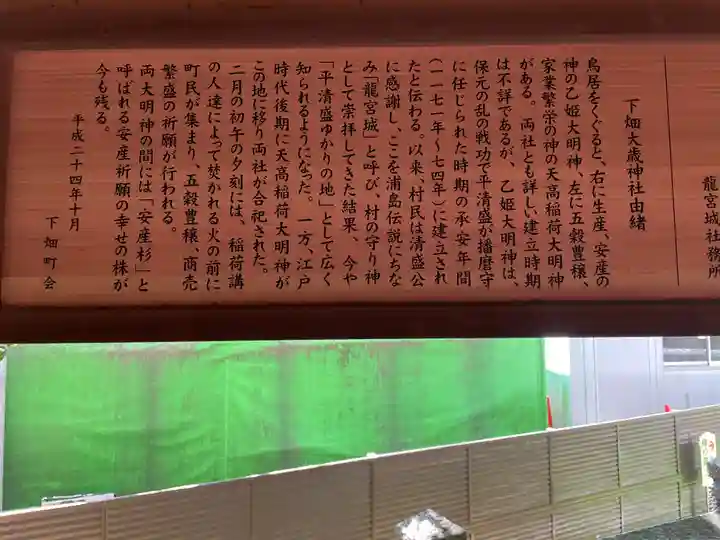 龍宮城社務所
下畑大歳神社由緒
鳥居をくぐると、右に生産、安産の
神の乙姫大明神、左に五穀豊穣、
家業繁栄の神の天高稲荷大明神
がある。両社とも詳しい建立時期
は不詳であるが、乙姫大明神は、
保元の乱の戦功で平清盛が播磨守
に任じられた時期の承安年間
(一一七一年〜七四年)に建立され
たと伝わる。以来、村民は清盛公
に感謝し、ここを浦島伝説にちな
み「龍宮城」と呼び、村の守り神
として崇拝してきた結果、今や
「平清盛ゆかりの地」として広く
知られるようになった。一方、江戸
時代後期に天高稲荷大明神が
この地に移り両社が合祀された。
二月の初午の夕刻には、稲荷講
の人達によって焚かれる火の前に
町民が集まり、五穀豊穣、商売
繁盛の祈願が行われる。
両大明神の間には「安産杉」と
呼ばれる安産祈願の幸せの株が
今も残る。
平成二十四年十月
下畑町会